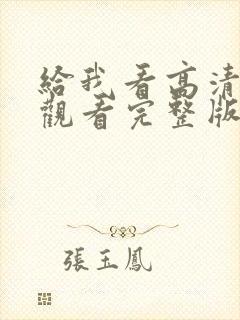 給我看高清
觀看完整版
張玉鳳